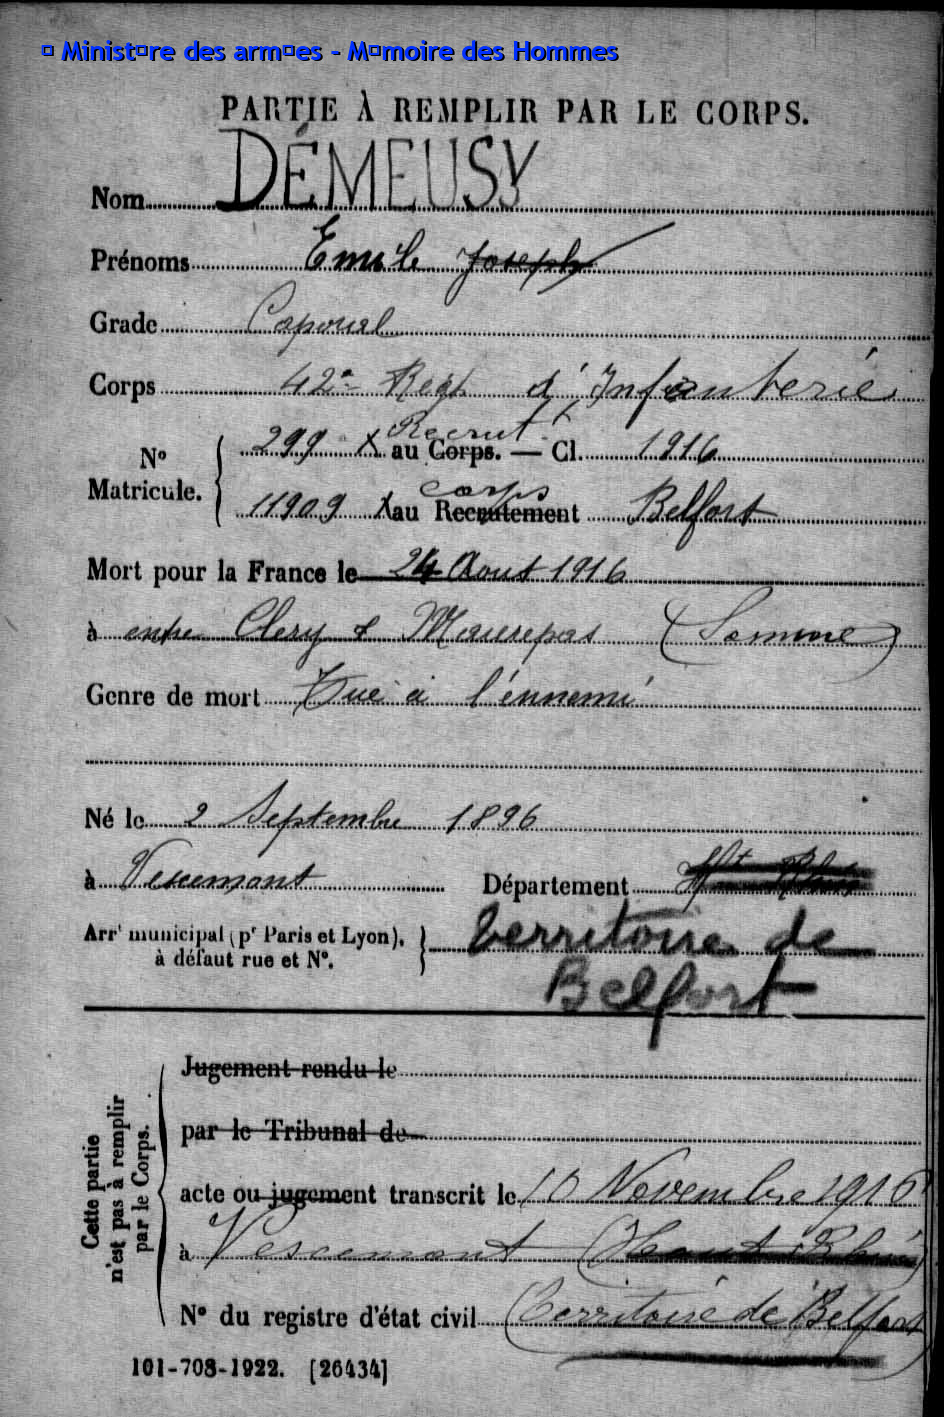 © Ministère des armées - Mémoire des Hommes
PARTIE À REMPLIR PAR LE CORPS.
Nom DEMEUSY
Prénoms Emile Joseph
Grade Caporal
Corps 42e Regt d'Infanterie
N° Matricule. { 299 X au Corps. — Cl. 1916
Recrut t
11909 X au Recrutement Belfort
corps
Mort pour la France le 24 Aout 1916
à entre Clery & Maurepas (Somme)
Genre de mort Tué à l'énnemi
Né le 2 Septembre 1896
à Vescemont Département Ht Rhin
Arrt municipal (pr Paris et Lyon), à défaut rue et N°. } territoire de
Belfort
Cette partie n'est pas à remplir par le Corps.
Jugement rendu le
par le Tribunal de
acte ou jugement transcrit le 10 Novembre 1916
à Vescemont (Haut Rhin)
N° du registre d'état civil (Territoire de Belfort)
101-708-1922. [26434]